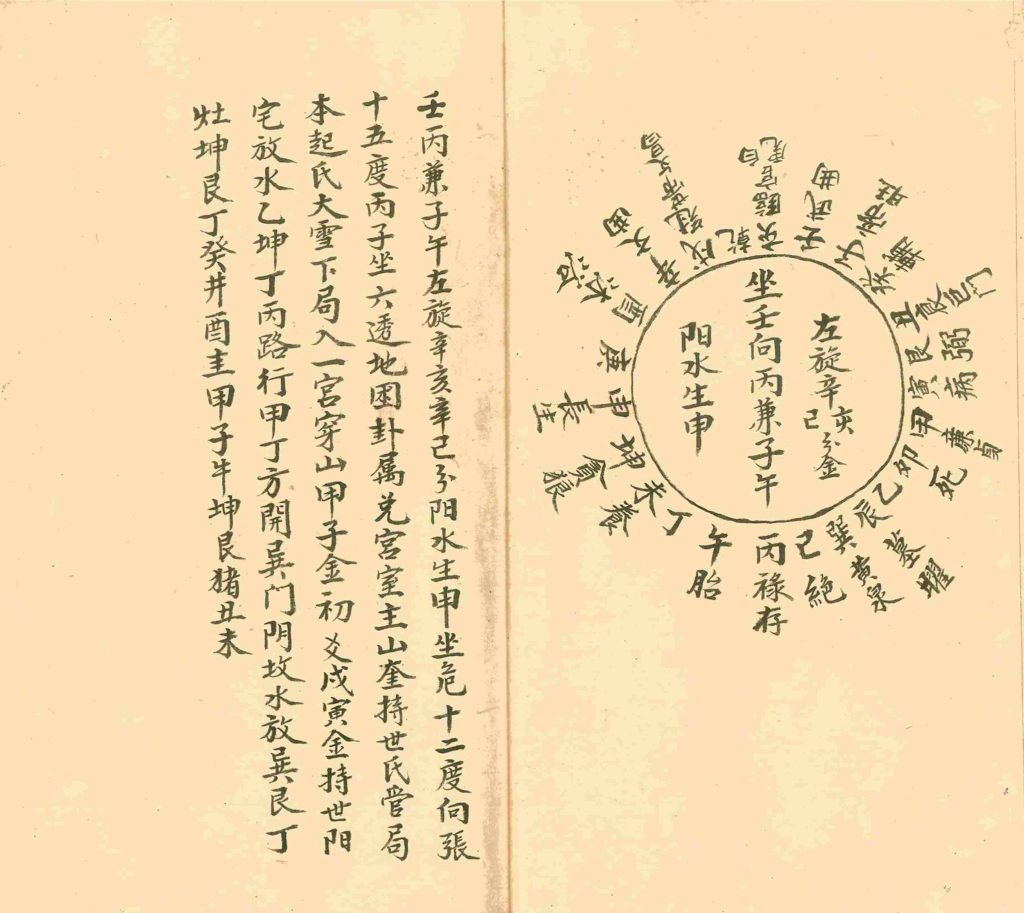 坐壬向丙兼子午
左旋辛亥
己分金
阳水生申
壬武曲
子帝旺
癸
丑
艮
寅病
甲廉贞
卯死
乙
辰墓
巽黄泉
巳绝
丙禄存
午胎
丁
未養
坤貪狼
申長生
庚
酉
辛文曲
戌冠帶
乾
亥臨官
壬丙兼子午左旋辛亥辛己分阳水生申坐危十二度向張
十五度丙子坐六透地困卦属兑宫室主山奎持世氏管局
本起氏大雪下局入一宫穿山甲子金初爻戍寅金持世阳
宅放水乙坤丁丙路行甲丁方開巽门阴坟水放巽艮丁
灶坤艮丁癸井酉圭甲子牛坤艮猪丑未